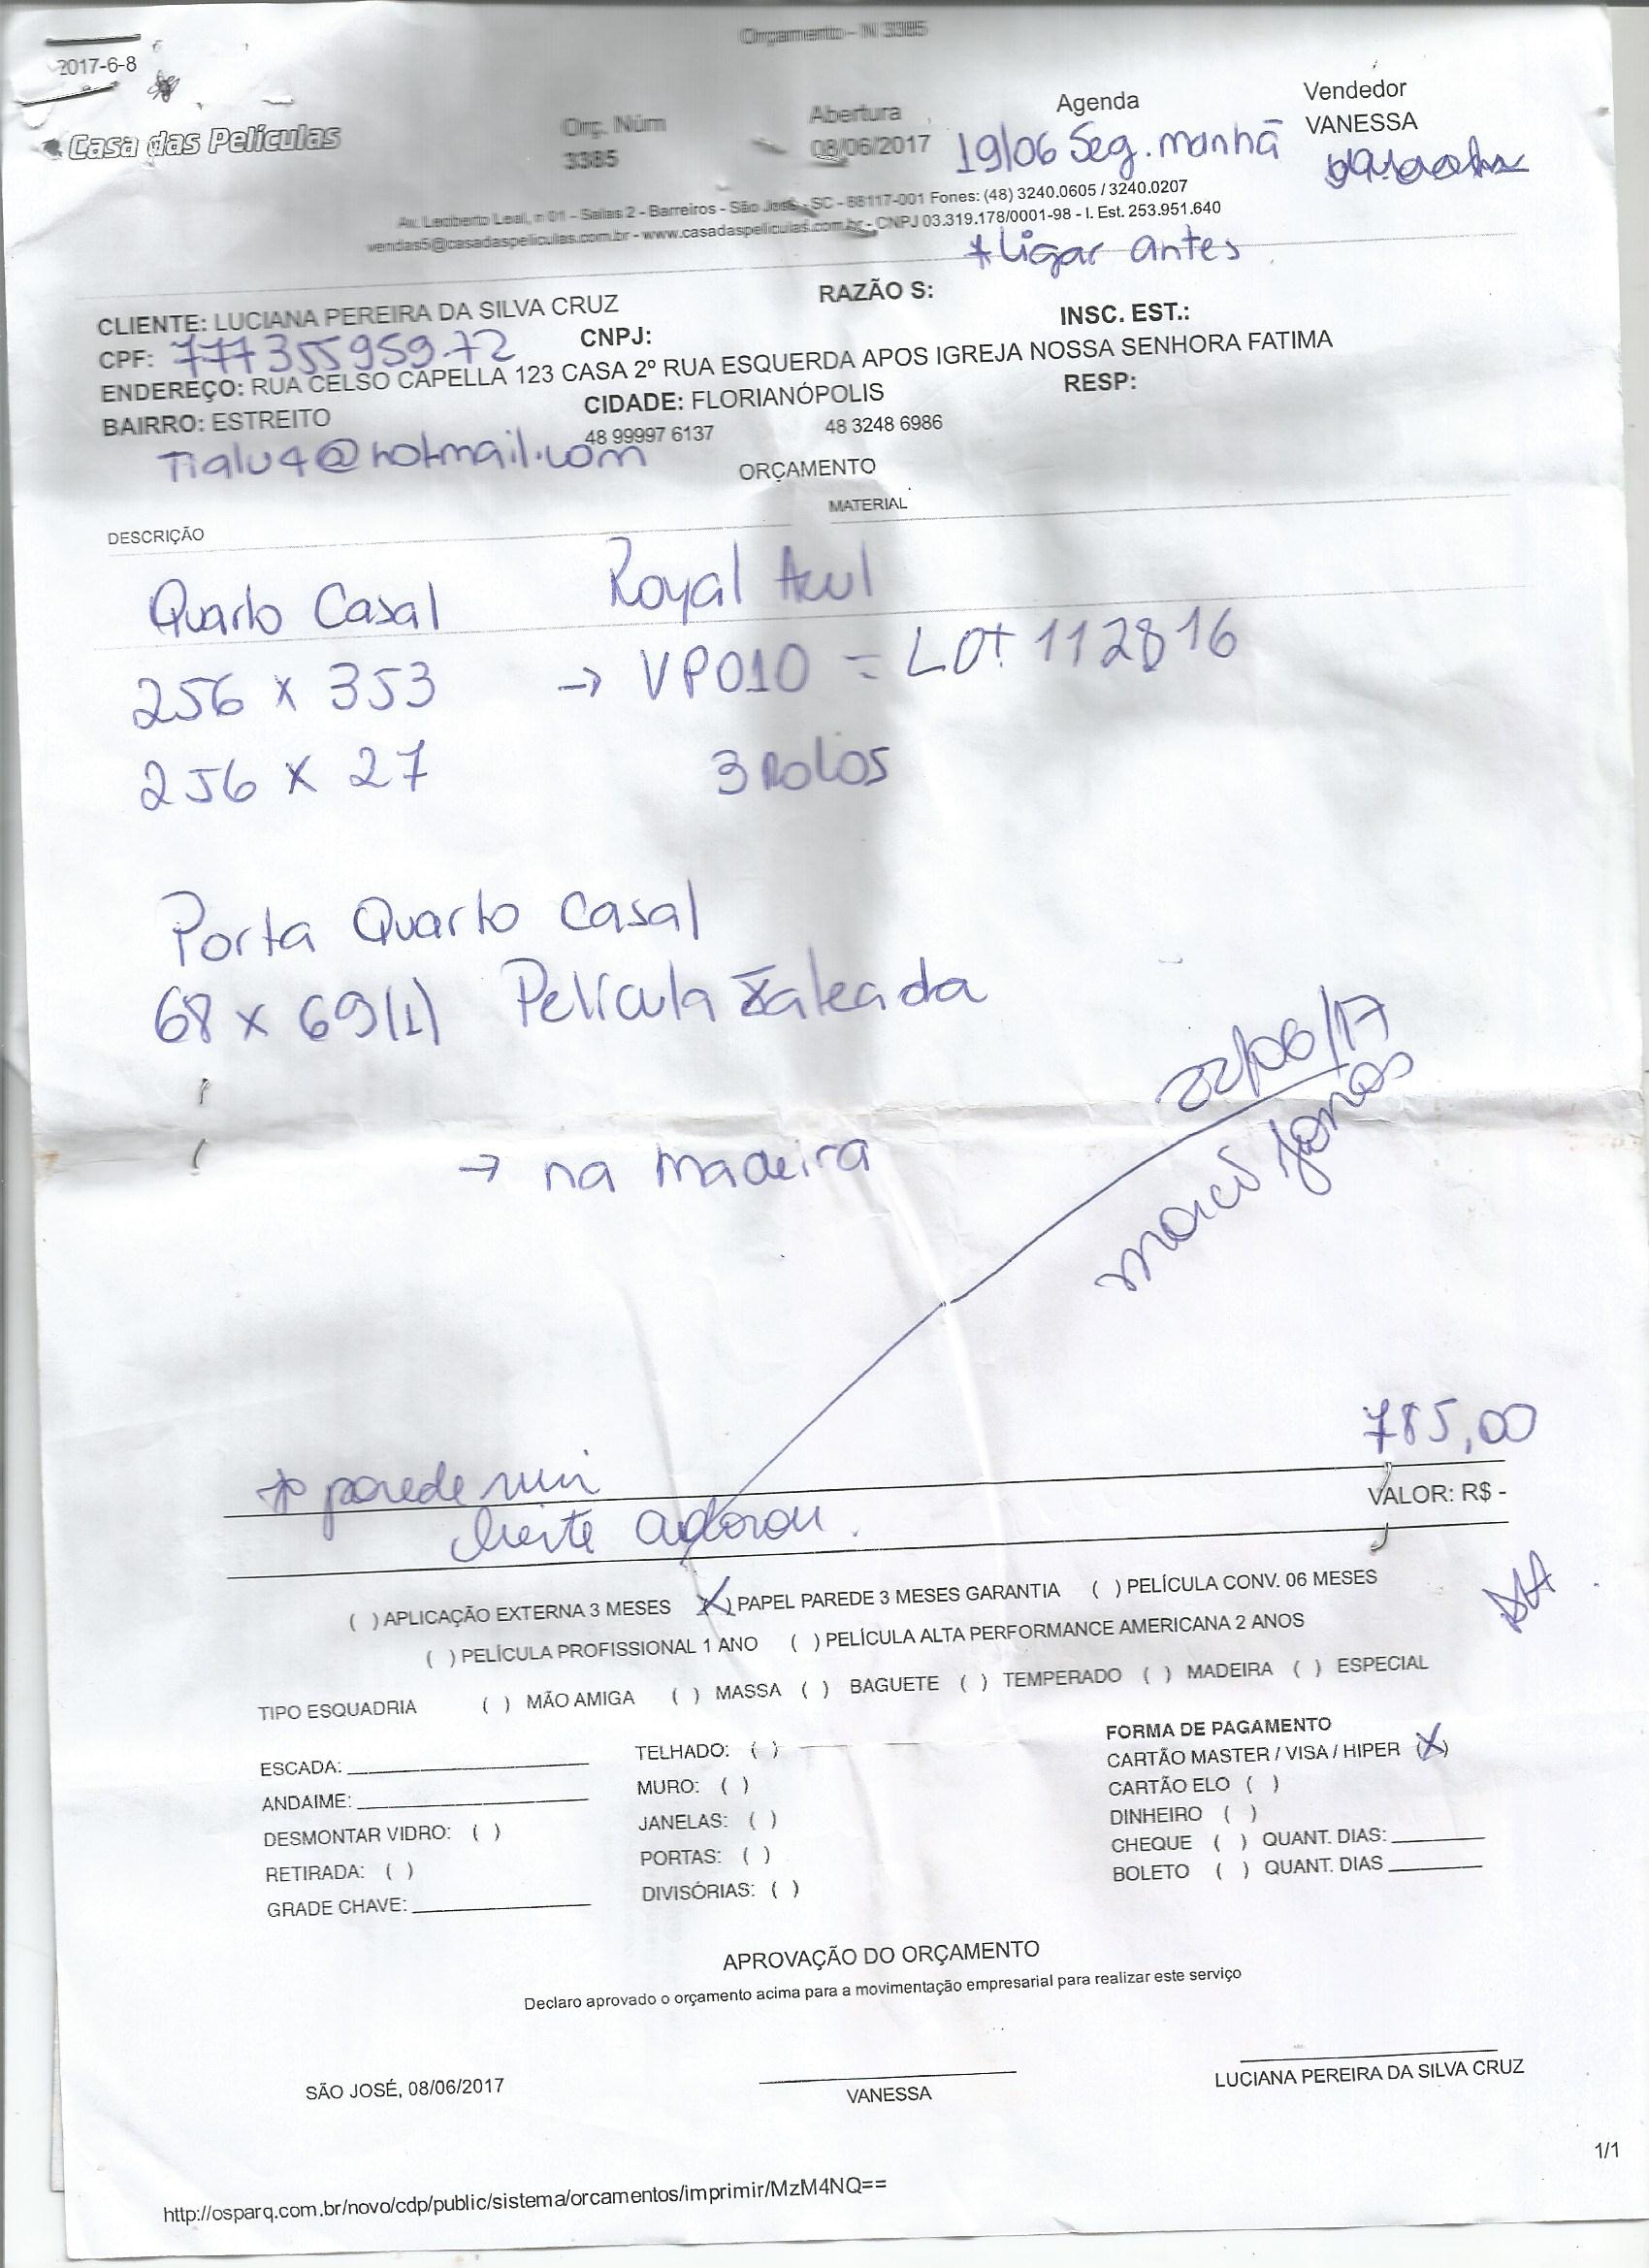 Orçamento - N 3385
2017-6-8
Casa das Películas
Orç. Núm
3385
Abertura
08/06/2017
Agenda
19/06 Seg. manhã
Vendedor
VANESSA
Av. Leoberto Leal, n 01 - Salas 2 - Barreiros - São José - SC - 88117-001 Fones: (48) 3240.0605 / 3240.0207
vendas5@casadaspeliculas.com.br - www.casadaspeliculas.com.br - CNPJ 03.319.178/0001-98 - I. Est. 253.951.640
* Ligar antes
CLIENTE: LUCIANA PEREIRA DA SILVA CRUZ RAZÃO S:
CPF: 777355959.72 CNPJ: INSC. EST.:
ENDEREÇO: RUA CELSO CAPELLA 123 CASA 2º RUA ESQUERDA APOS IGREJA NOSSA SENHORA FATIMA
BAIRRO: ESTREITO CIDADE: FLORIANÓPOLIS RESP:
48 99997 6137 48 3248 6986
Tialu4@hotmail.com
ORÇAMENTO
DESCRIÇÃO MATERIAL
Quarto Casal Royal Azul
256 x 353 → VP010 = LOT 112816
256 x 27 3 Rolos
Porta Quarto Casal
68 x 69(1) Película Jateada
22/06/17
→ na madeira
785,00
* parede ruim
cliente adorou.
VALOR: R$ -
( ) APLICAÇÃO EXTERNA 3 MESES (X) PAPEL PAREDE 3 MESES GARANTIA ( ) PELÍCULA CONV. 06 MESES
( ) PELÍCULA PROFISSIONAL 1 ANO ( ) PELÍCULA ALTA PERFORMANCE AMERICANA 2 ANOS
TIPO ESQUADRIA ( ) MÃO AMIGA ( ) MASSA ( ) BAGUETE ( ) TEMPERADO ( ) MADEIRA ( ) ESPECIAL
ESCADA:
ANDAIME:
DESMONTAR VIDRO: ( )
RETIRADA: ( )
GRADE CHAVE:
TELHADO: ( )
MURO: ( )
JANELAS: ( )
PORTAS: ( )
DIVISÓRIAS: ( )
FORMA DE PAGAMENTO
CARTÃO MASTER / VISA / HIPER (X)
CARTÃO ELO ( )
DINHEIRO ( )
CHEQUE ( ) QUANT. DIAS:
BOLETO ( ) QUANT. DIAS
APROVAÇÃO DO ORÇAMENTO
Declaro aprovado o orçamento acima para a movimentação empresarial para realizar este serviço
SÃO JOSÉ, 08/06/2017
VANESSA
LUCIANA PEREIRA DA SILVA CRUZ
1/1
http://osparq.com.br/novo/cdp/public/sistema/orcamentos/imprimir/MzM4NQ==